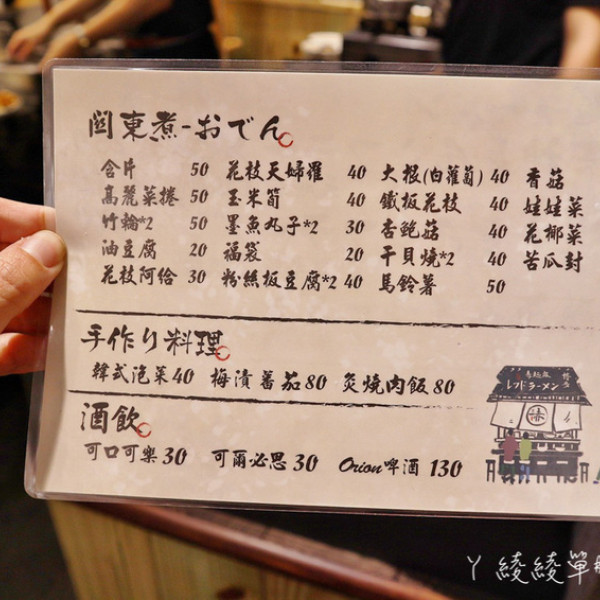 関東煮-おでん
含片 50 花枝天婦羅 40 大根(白蘿蔔) 40 香菇
高麗菜捲 50 玉米筍 40 鐵板花枝 40 娃娃菜
竹輪*2 50 墨魚丸子*2 30 杏鮑菇 40 花椰菜
油豆腐 20 福袋 20 干貝燒*2 40 苦瓜封
花枝阿給 30 粉絲板豆腐*2 40 馬鈴薯 50
手作り料理
韓式泡菜40 梅漬番茄80 炙燒肉飯80
酒飲
可口可樂30 可爾必思30 Orion啤酒130
レフトラーメン
ㄚ綾綾單